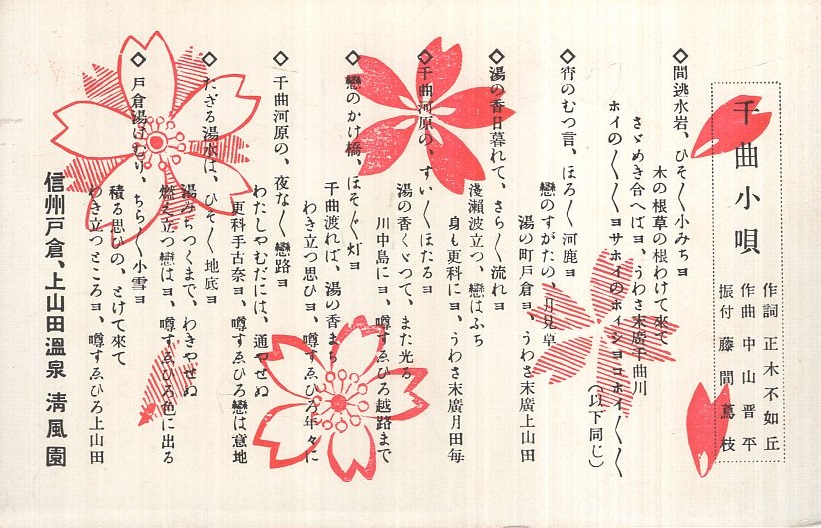 千曲小唄
作詞 正木不如丘
作曲 中山晋平
振付 藤間蔦枝
◇間逃水岩、ひそ〳〵小みちョ
木の根草の根わけて來て
さゞめき合へばョ、うわさ末廣千曲川
ホイの〳〵〳〵ョサホイのホイショコホイ〳〵〳〵
(以下同じ)
◇宵のむつ言、ほろ〳〵河鹿ョ
戀のすがたの、月見草
湯の町戸倉ョ、うわさ末廣上山田
◇湯の香日暮れて、さら〳〵流れョ
淺瀬波立つ、戀はふち
身も更科にョ、うわさ末廣月田毎
◇千曲河原の、すい〳〵ほたるョ
湯の香くゞつて、また光る
川中島にョ、噂すゑひろ越路まで
◇戀のかけ橋、ほそ〴〵灯ョ
千曲渡れば、湯の香まち
わき立つ思ひョ、噂すゑひろ年々に
◇千曲河原の、夜な〳〵戀路ョ
わたしやむだには、通やせぬ
更科手古奈ョ、噂すゑひろ戀は意地
◇たぎる湯水は、ひそ〳〵地底ョ
湯みちつくまで、わきやせぬ
燃え立つ戀はョ、噂すゑひろ色に出る
◇戸倉湯けむり、ちら〳〵小雪ョ
積る思ひの、とけて來て
わき立つところョ、噂すゑひろ上山田
信州戸倉、上山田溫泉 淸風園